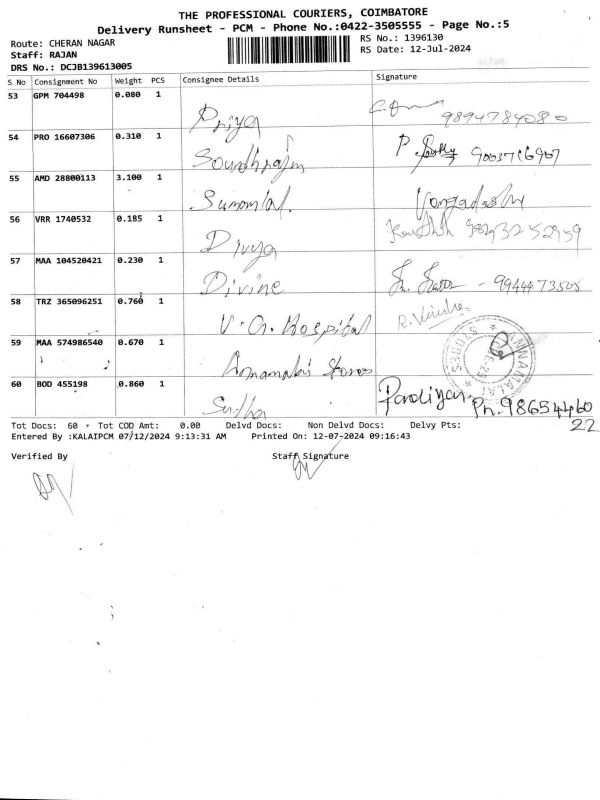 THE PROFESSIONAL COURIERS, COIMBATORE
Delivery Runsheet - PCM - Phone No.:0422-3505555 - Page No.:5
Route: CHERAN NAGAR
RS No.: 1396130
Staff: RAJAN
RS Date: 12-Jul-2024
DRS No.: DCJB139613005
S No Consignment No Weight PCS Consignee Details Signature
53 GPM 704498 0.080 1 Priya 9894784080
54 PRO 16607306 0.310 1 Soundhrajan P. 9003716907
55 AMD 28800113 3.100 1
56 VRR 1740532 0.185 1 Divya 9843252959
57 MAA 104520421 0.230 1 Divine - 9944473505
58 TRZ 365096251 0.760 1 V.G. Hospital R.
59 MAA 574986540 0.670 1 Stores ANNAMALAI STORES
60 BOD 455198 0.860 1 Sudha Pandiyan Ph. 98654460
22
Tot Docs: 60 Tot COD Amt: 0.00 Delvd Docs: Non Delvd Docs: Delvy Pts:
Entered By :KALAIPCM 07/12/2024 9:13:31 AM Printed On: 12-07-2024 09:16:43
Verified By Staff Signature